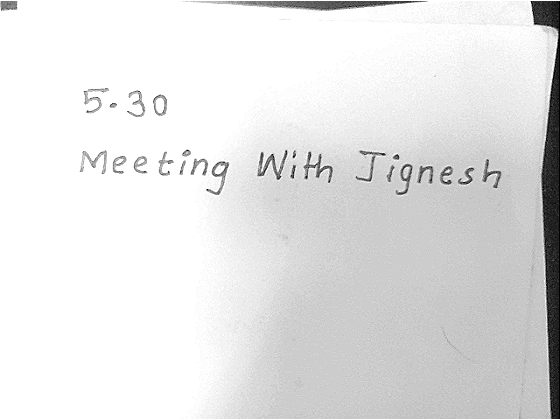 5.30
Meeting With Jignesh